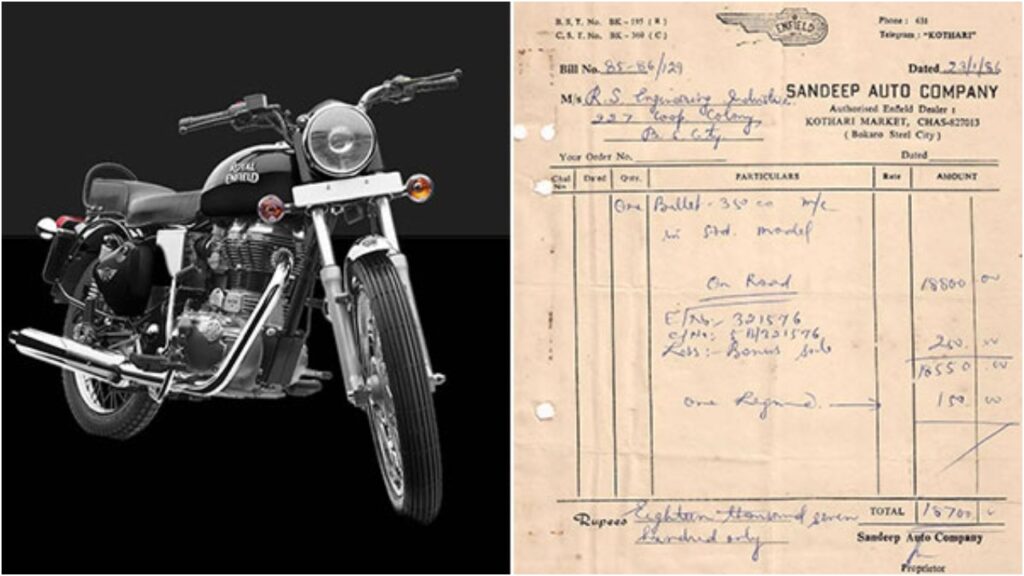 ROYAL
ENFIELD
B. S. T. No. BK - 195 ( R )
C. S. T. No. BK - 360 ( C )
ENFIELD
Phone : 431
Telegram : "KOTHARI"
Bill No. 85-86/129
Dated 23/1/86
SANDEEP AUTO COMPANY
Authorised Enfield Dealer :
KOTHARI MARKET, CHAS-827013
( Bokaro Steel City )
M/s R.S. Engineering Industries.
227 Coop. Colony,
B. S. City
Your Order No.
Dated
Chal No. Dated Qnty. PARTICULARS Rate AMOUNT
One Bullet - 350 cc m/c
in Std. model
On Road 18800 00
E/No:- 321576
C/No:- 5B/321576
Less:- Bonus 250 00
18550 00
one 150 00
Rupees Eighteen thousand seven
hundred only
TOTAL 18700
Sandeep Auto Company
Proprietor